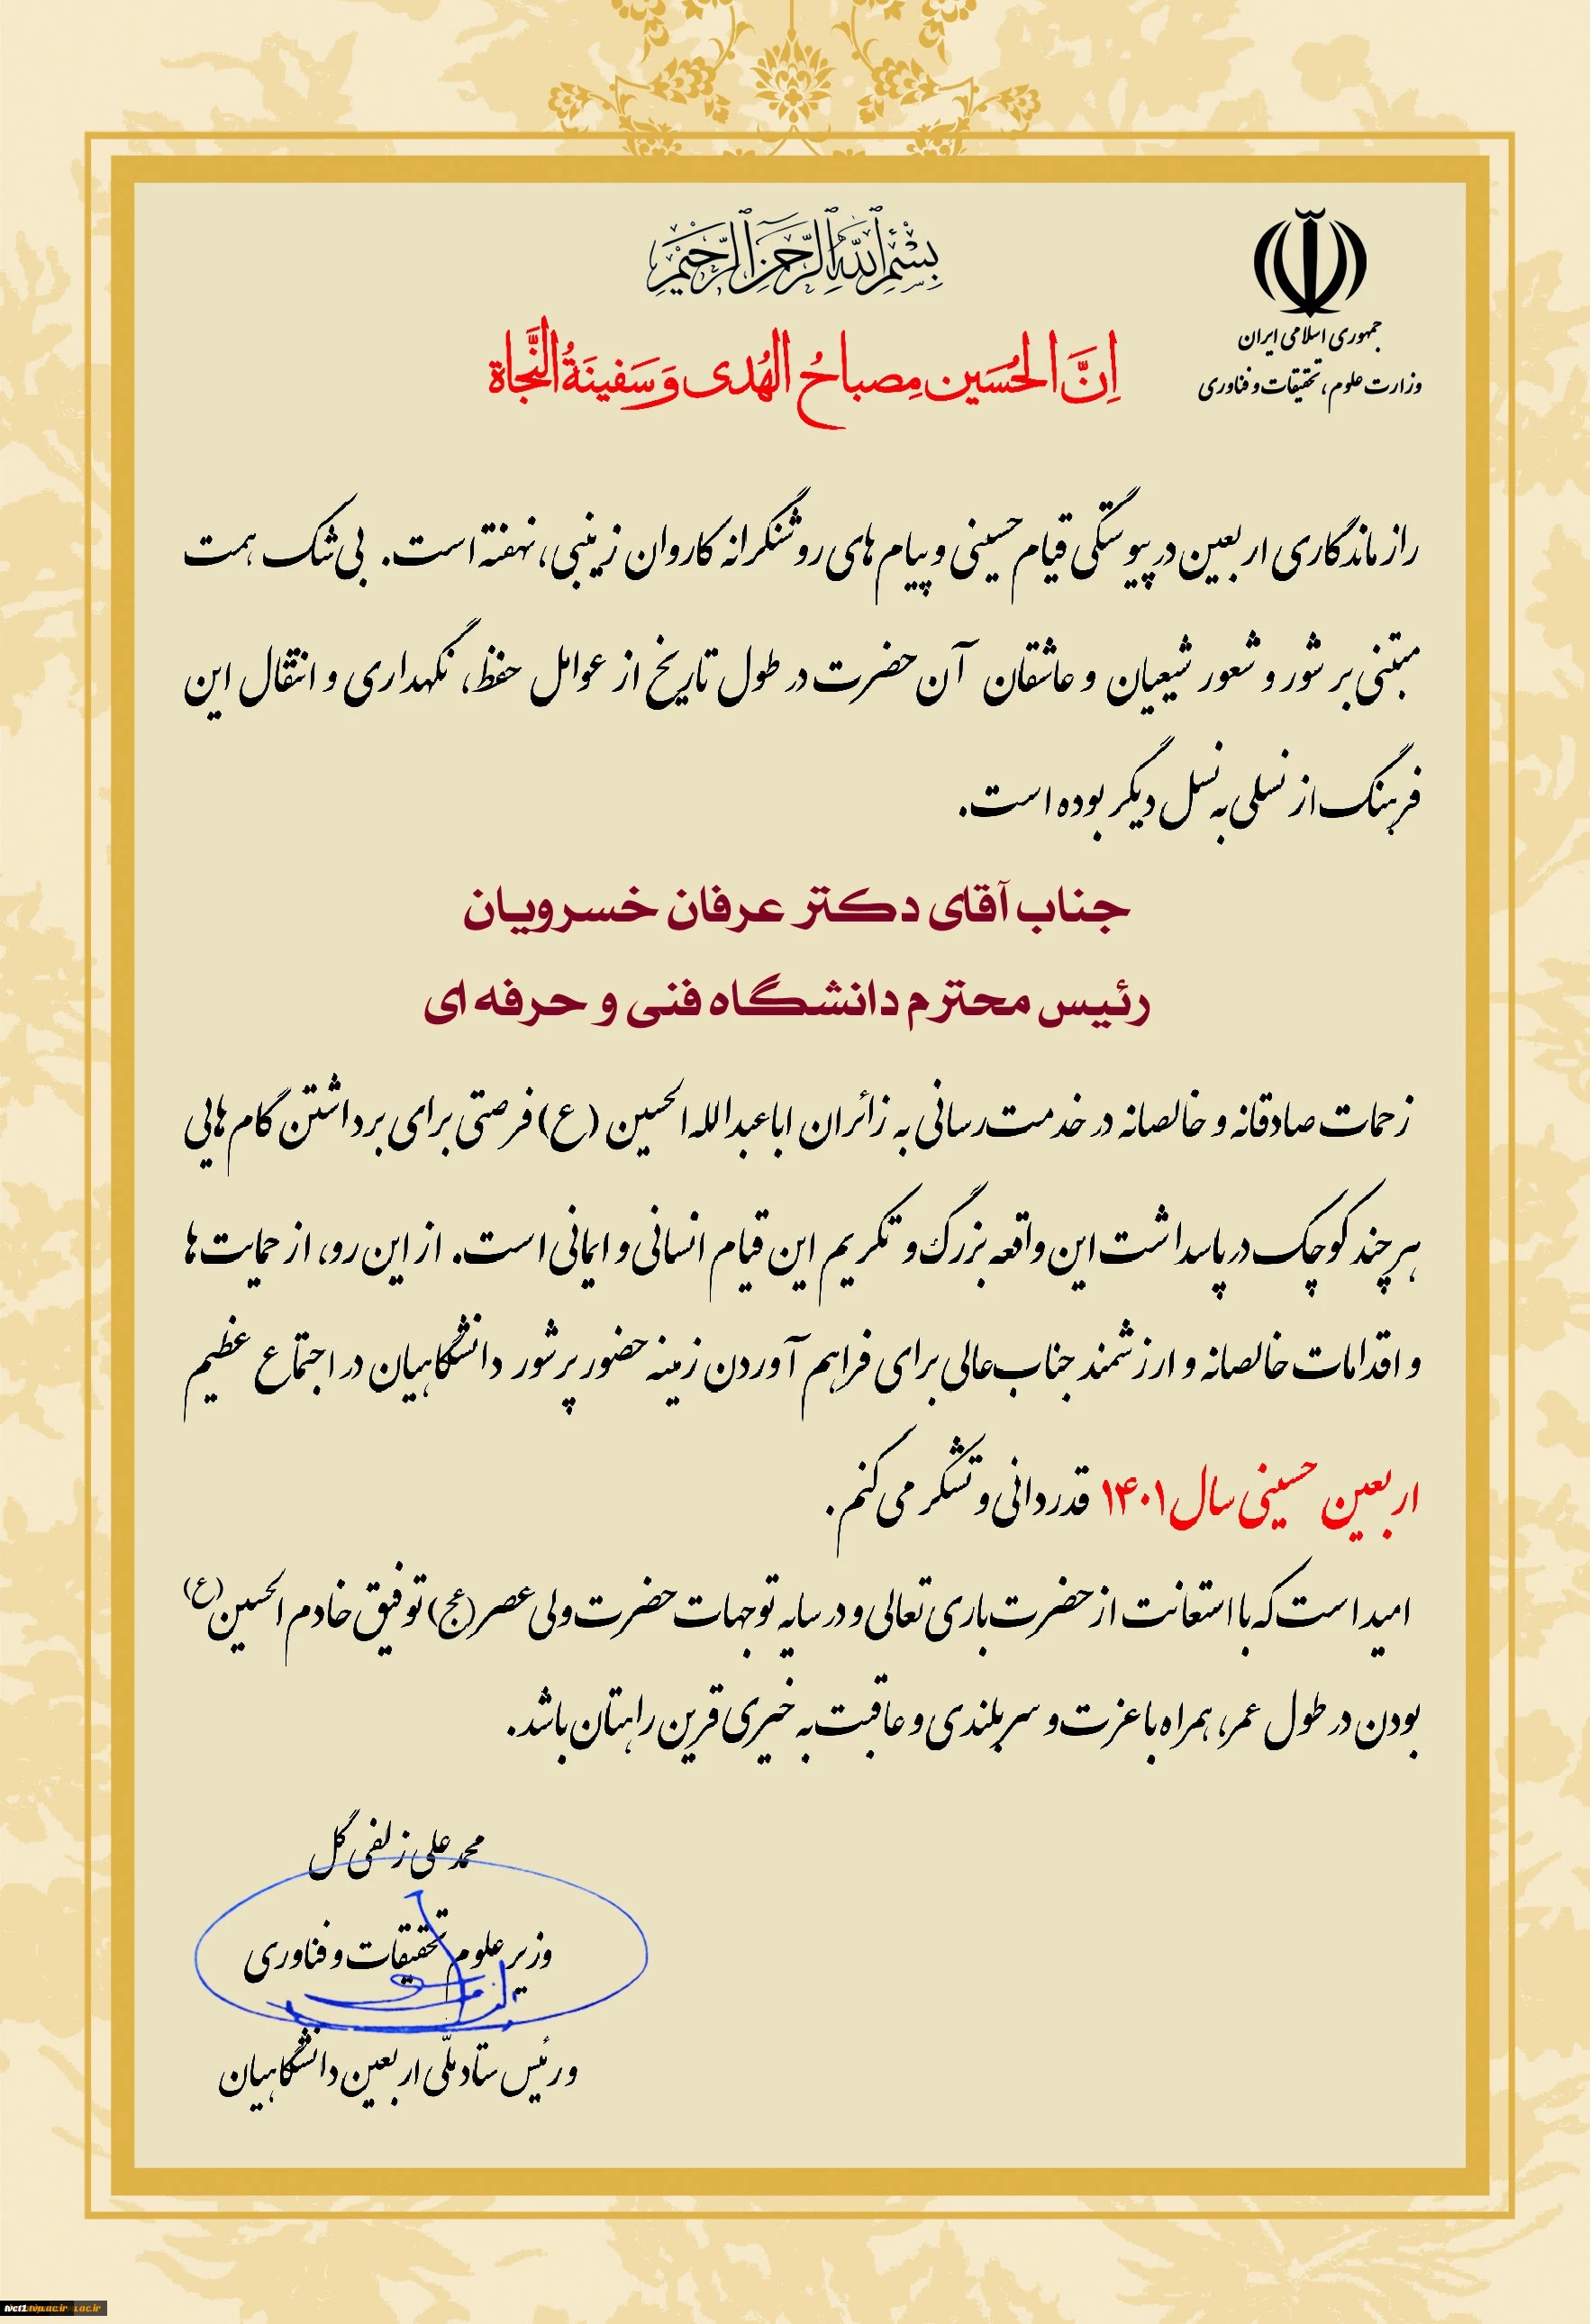 بِسْمِ اللَّهِ الرَّحْمَنِ الرَّحِيمِ
جمهوری اسلامی ایران
وزارت علوم، تحقیقات و فناوری
اِنَّ الحُسَین مِصباحُ الهُدی وَ سَفینَةُ النَّجاة
راز ماندگاری اربعین در پیوستگی قیام حسینی و پیام های روشنگرانه کاروان زینبی، نهفته است. بی شک همت
مبتنی بر شور و شعور شیعیان و عاشقان آن حضرت در طول تاریخ از عوامل حفظ، نگهداری و انتقال این
فرهنگ از نسلی به نسل دیگر بوده است.
جناب آقای دکتر عرفان خسرویان
رئیس محترم دانشگاه فنی و حرفه ای
زحمات صادقانه و خالصانه در خدمت رسانی به زائران اباعبدالله الحسین (ع) فرصتی برای برداشتن گام هایی
هر چند کوچک در پاسداشت این واقعه بزرگ و تکریم این قیام انسانی و ایمانی است. از این رو، از حمایت ها
و اقدامات خالصانه و ارزشمند جناب عالی برای فراهم آوردن زمینه حضور پرشور دانشگاهیان در اجتماع عظیم
اربعین حسینی سال ۱۴۰۱ قدردانی و تشکر می کنم.
امید است که با استعانت از حضرت باری تعالی و در سایه توجهات حضرت ولی عصر (عج) توفیق خادم الحسین (ع)
بودن در طول عمر، همراه با عزت و سربلندی و عاقبت به خیری قرین راهتان باشد.
محمد علی زلفی گل
وزیر علوم تحقیقات و فناوری
و رئیس ستاد ملّی اربعین دانشگاهیان